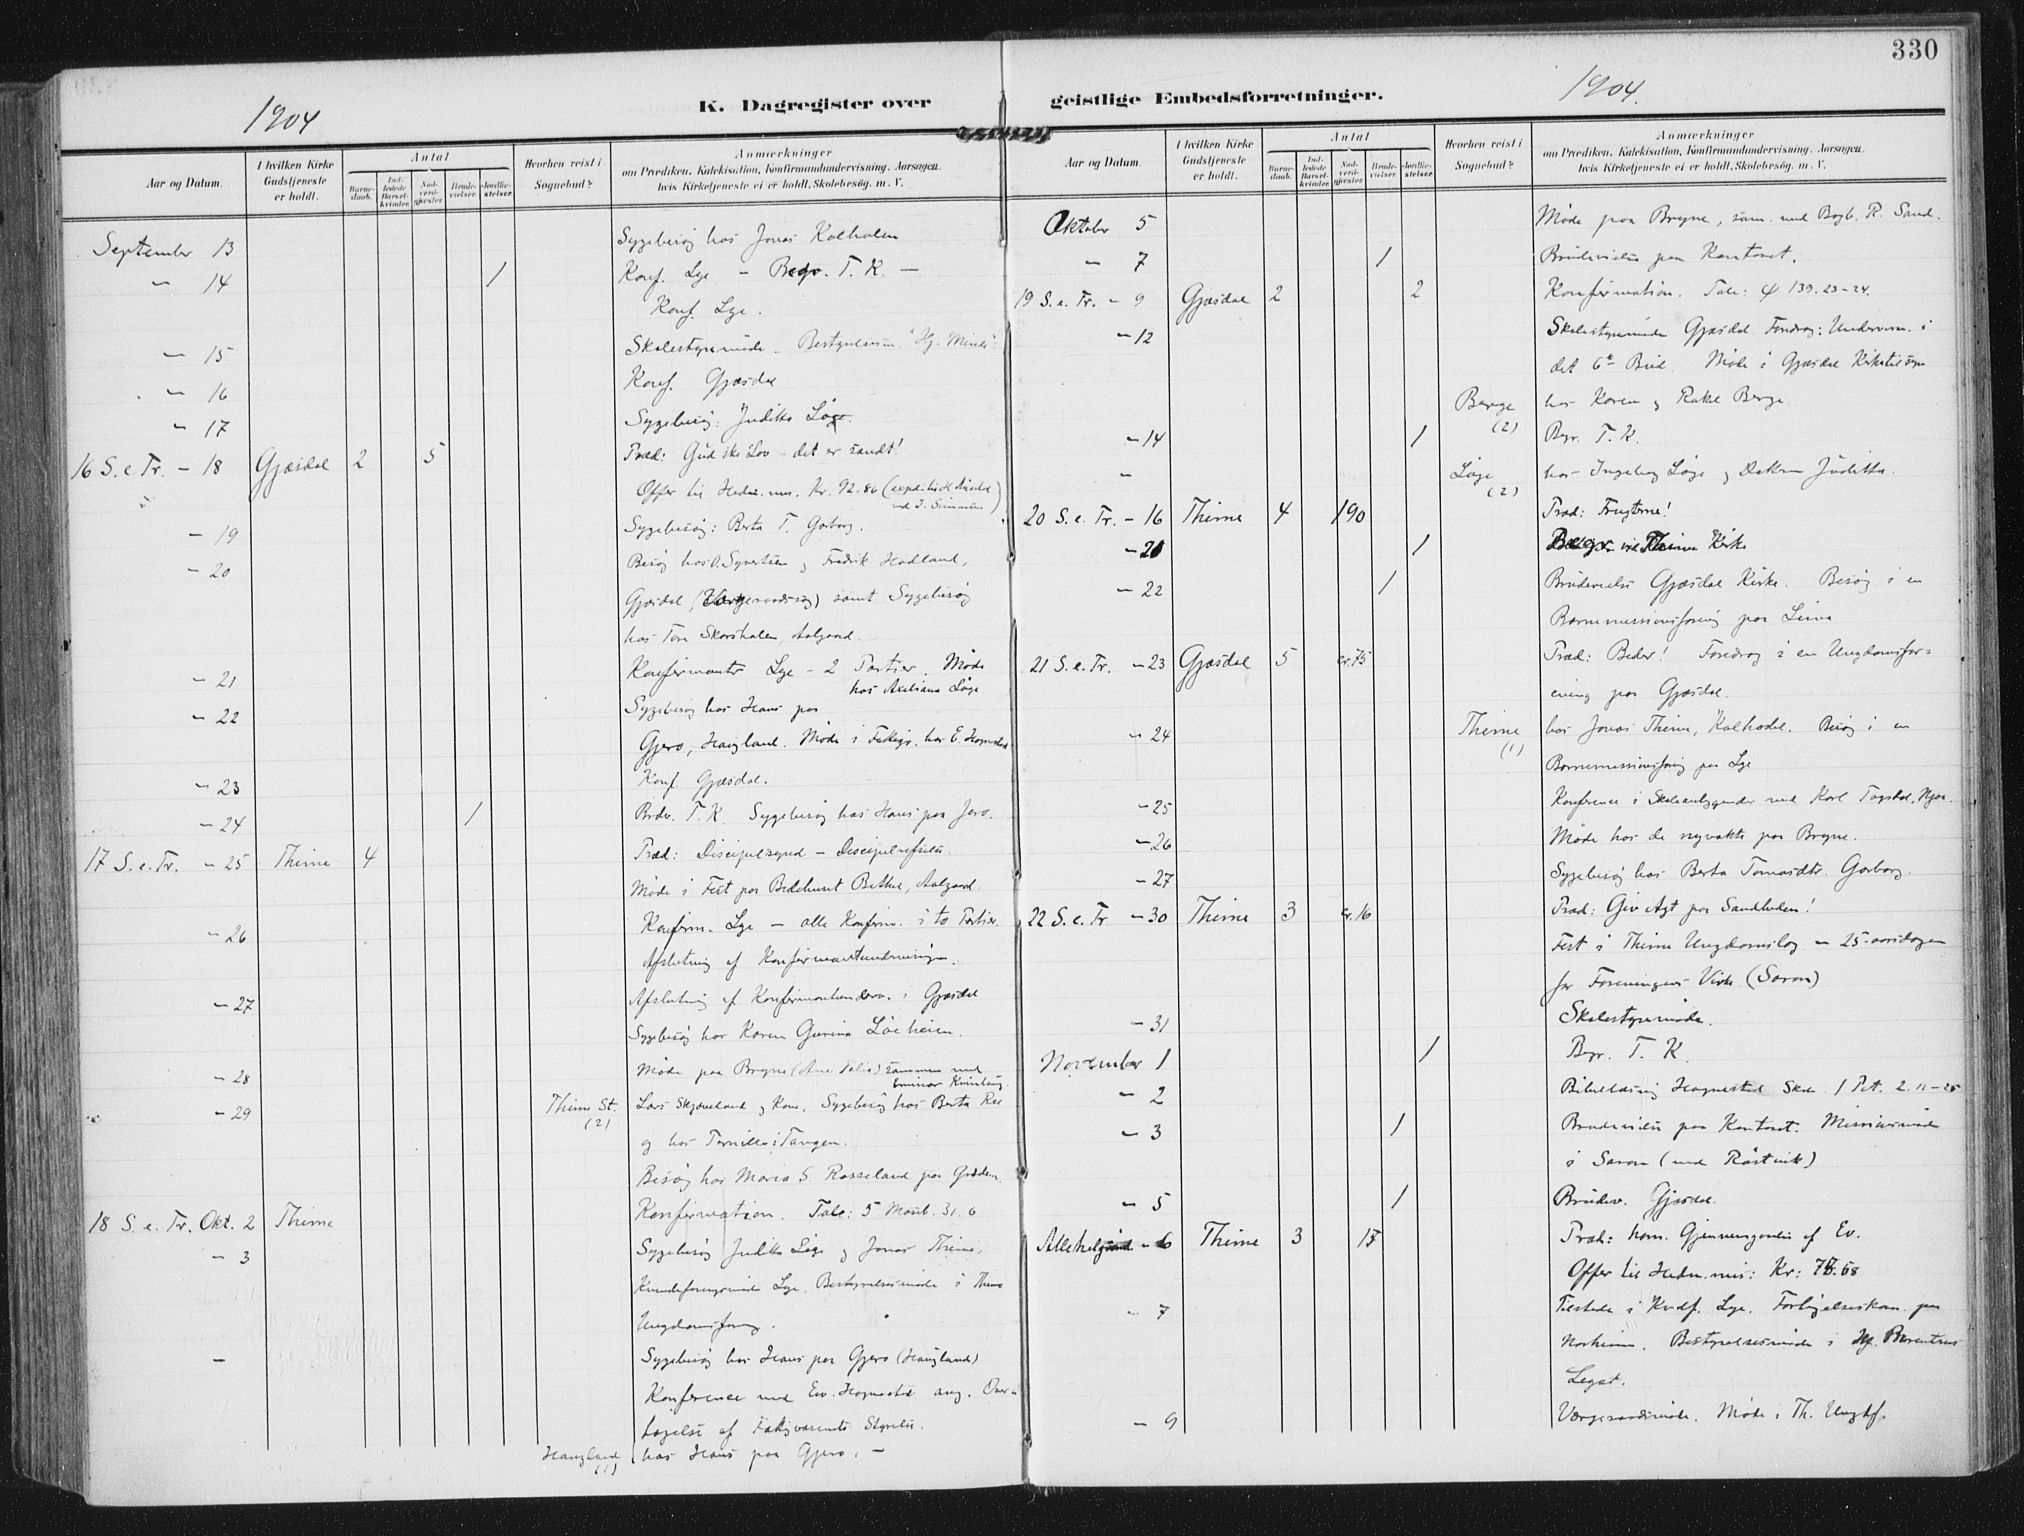 330
1904
K. Dagregister over geistlige Embedsforretninger.
1904.
Aar og Datum.
I hvilken Kirke Gudstjeneste er holdt.
Antal
Barnedaab.
Indledede Barselkvinder.
Nadverdgjæster.
Brudevielser.
Jordfæstelser.
Hvorhen reist i Sognebud?
Anmærkninger
om Prædiken, Katekisation, Konfirmandundervisning, Aarsagen
hvis Kirketjeneste ei er holdt, Skolebesøg. m. V.
September 13 Sygebesøg hos Jonas Kalhalen
" 14 1 Konf. Lye – Begr. T. K. –
Konf. Lye.
" 15 Skolestyremøde. "Hg. Minde"
" 16 Konf. Gjæsdal
" 17 Sygebesøg: Juditta Løge.
16 S. e. Tr. – 18 Gjæsdal 2 5 Præd: Gud ske Lov – det er sandt!
Offer til Hedn. mis. Kr. 92.80
– 19 Sygebesøg: Berta T. Garborg.
– 20 Besøg hos O. Syvertsen og Fredrik Hadland,
Gjæsdal samt Sygebesøg
hos Tore Skorshalen, Aalgaard.
– 21 Konfirmanter Lye – 2 Partier. Møde
hos Axeliana Løge
– 22 Sygebesøg hos Hans paa
Gjero, Haugland. Møde i Fattigv. hos E. Hognestad
– 23 Konf. Gjæsdal.
– 24 1 Brdv. T. K. Sygebesøg hos Hans paa Jero.
17 S. e. Tr. – 25 Thime 4 Præd: Discipelsynd –
Møde i Fest paa Bedehuset Betel, Aalgaard.
– 26 Konfirm. Lye – alle Konfirm. i to Partier.
Afslutning af Konfirmantundervisningen.
– 27 Afslutning af Konfirmantunderv. i Gjæsdal
Sygebesøg hos Karen Gurina Løeheien.
– 28 Møde paa Bryne sammen med
– 29 Thime St. (2) Lars Skjæveland og Kone. Sygebesøg hos Berta Ree
og hos Pernille i Tangen.
Besøg hos Maria S. Rosseland paa Grøden.
18 S. e. Tr. Okt. 2 Thime Konfirmation. Tale: 5 Moseb. 31.6
– 3 Sygebesøg Juditta Løge og Jonas Thime.
Kvindeforeningsmøde Lye. Bestyrelsesmøde i Thime
Ungdomsforening.
– Sygebesøg hos Hans paa Gjero (Haugland)
Konference med Ew. Hognestad ang. Over-
tagelse af Fattigvæsenets Styrelse.
Haugland (1) hos Hans paa Gjero. –
Aar og Datum.
I hvilken Kirke Gudstjeneste er holdt.
Antal
Barnedaab.
Indledede Barselkvinder.
Nadverdgjæster.
Brudevielser.
Jordfæstelser.
Hvorhen reist i Sognebud?
Anmærkninger
om Prædiken, Katekisation, Konfirmandundervisning, Aarsagen
hvis Kirketjeneste ei er holdt, Skolebesøg. m. V.
Oktober 5 Møde paa Bryne, sam. med Bogb. R. Sand.
– 7 1 Brudevielse paa Kontoret.
19 S. e. Tr. – 9 Gjæsdal 2 2 Konfirmation. Tale: ψ 139. 23–24.
– 12 Skolestyremøde Gjæsdal Foredrag: Undervisn. i
det 6te Bud. Møde i Gjæsdal Kirketilsyn
Berge (2) hos Karen og Rakel Berge.
– 14 1 Begr. T. K.
– Løge (2) hos Ingeborg Løge og Datteren Juditta.
20 S. e. Tr. – 16 Thime 4 190 Præd: Frugterne!
– 20 1 Begr. ved Thime Kirke
– 22 1 Brudevielse Gjæsdal Kirke. Besøg i en
Barnemissionsforening paa Lima
21 S. e. Tr. – 23 Gjæsdal 5 cr. 75 Præd: Beder! Foredrag i en Ungdomsfor-
ening paa Gjæsdal.
– 24 Thime (1) hos Jonas Thime, Kalhodel. Besøg i en
Barnemissionsforening paa Lye
– 25 Konference i Skoleanliggender med Karl
– 26 Møde hos de nyvakte paa Bryne.
– 27 Sygebesøg hos Berta Tomasdtr. Garborg.
22 S. e. Tr – 30 Thime 3 cr. 16 Præd: Giv Agt paa Sandheden!
Fest i Thime Ungdomslag – 25-aarsdagen
for Foreningens Virke (Saron)
– 31 Skolestyremøde.
November 1 1 Begr. T. K.
– 2 Bibellæsning Hognestad Skole 1 Pet. 2. 11–25
– 3 1 Brudevielse paa Kontoret. Missionsmøde
i Saron (med Råstvik)
– 5 1 Brudev. Gjæsdal.
Allehelgensd – 6 Thime 3 15 Præd: Gjennemgaaelse af Ev.
Offer til Hedn. mis: Kr: 78.68
– 7 Tilstede i Kvdf. Lye. Forligelseskom. paa
Norheim. Bestyrelsesmøde i Hg. Barentsens
Legat.
– 9 Værgeraadsmøde. Møde i Th. Ungdf.